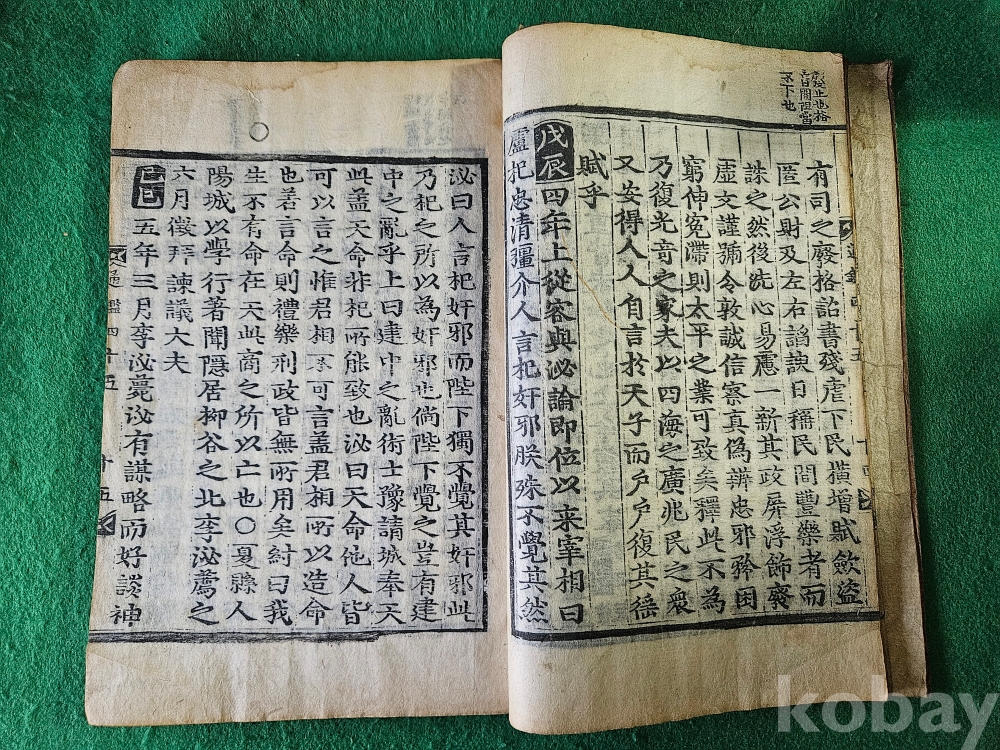 止也格
不下也
有司之廢格詔書殘虐下民橫增賦斂盜
匿公財及左右諂諛日稱民間豐樂者而
誅之然後洗心易慮一新其政屏浮飾廢
虛文謹號令敦誠信察真偽辨忠邪矜困
窮伸冤滯則太平之業可致矣釋此不為
乃復光奇之家夫以四海之廣兆民之衆
又安得人人自言於天子而戶戶復其徭
賦乎
戊辰四年上從容與泌論即位以来宰相曰
盧杞忠清彊介人言杞奸邪朕殊不覺其然
泌曰人言杞奸邪而陛下獨不覺其奸邪此
乃杞之所以為奸邪也倘陛下覺之豈有建
中之亂乎上曰建中之亂術士豫請城奉天
此盖天命非杞所能致也泌曰天命他人皆
可以言之惟君相不可言盖君相所以造命
也若言命則禮樂刑政皆無所用矣紂曰我
生不有命在天此商之所以亡也○夏縣人
陽城以學行著聞隱居柳谷之北李泌薦之
六月徵拜諫議大夫
己巳五年三月李泌薨泌有謀略而好談神
通鑑四十五 十五
kobay